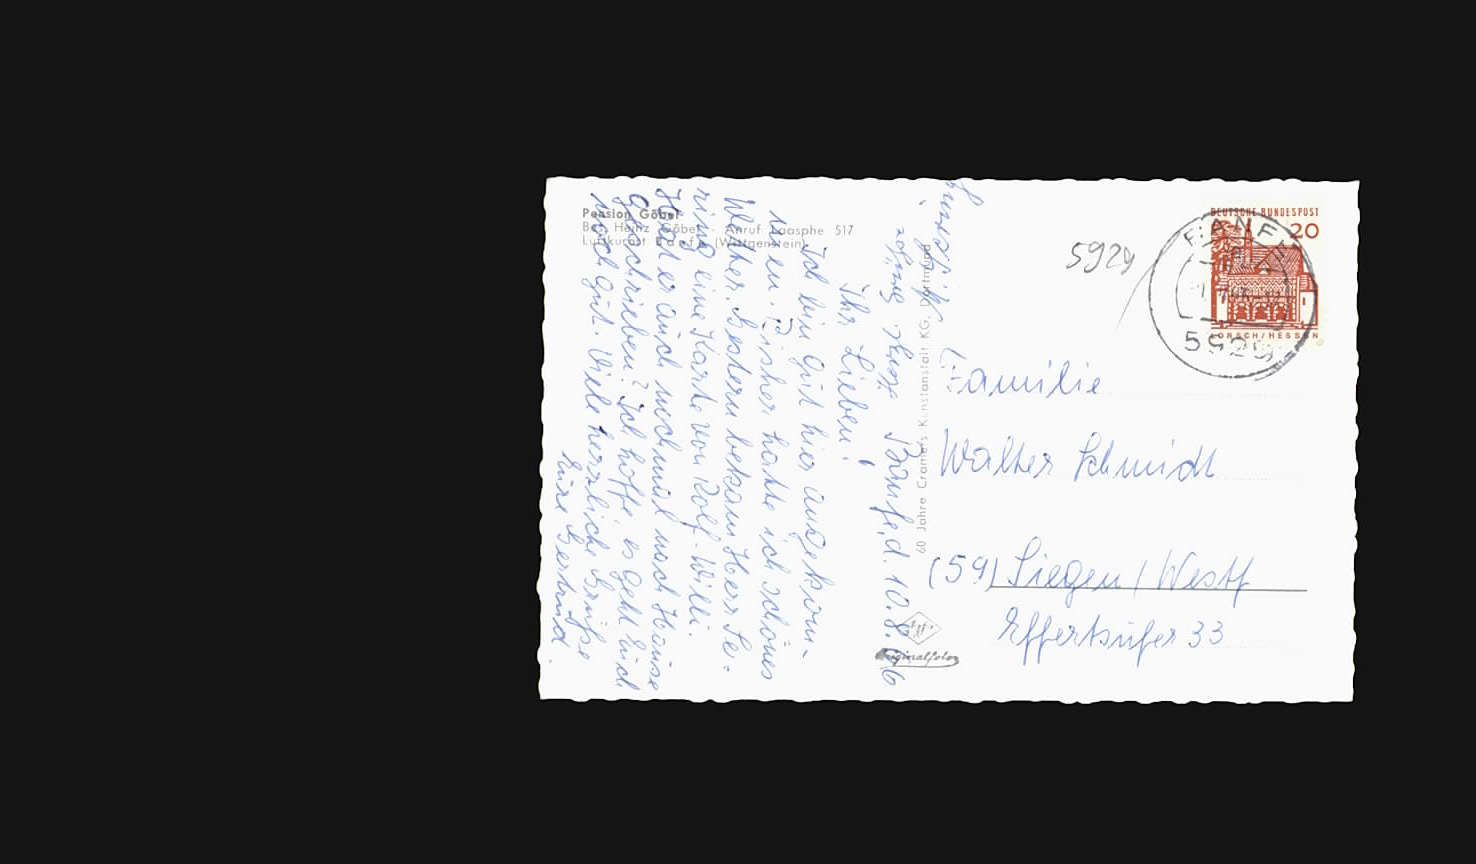 Pension Göbel
Bes. Heinz Göbel - Anruf Laasphe 517
Luftkurort Banfe (Wittgenstein)
Banfe, d. 10.8.66
Ihr Lieben!
Ich bin gut hier angekom-
men. Bisher hatte ich schönes
Wetter. Gestern bekam Herr Se-
ring eine Karte von Rolf-Willi.
Hat er auch nochmal nach Hause
geschrieben? Ich hoffe es geht Euch
noch gut. Viele herzliche Grüße
Eure Gertrud.
60 Jahre Cramers Kunstanstalt KG, Dortmund
Originalfoto
5929
DEUTSCHE BUNDESPOST
20
LORSCH/HESSEN
BANFE
5929
Familie
Walter Schmidt
(59) Siegen / Westf
Effertsufer 33